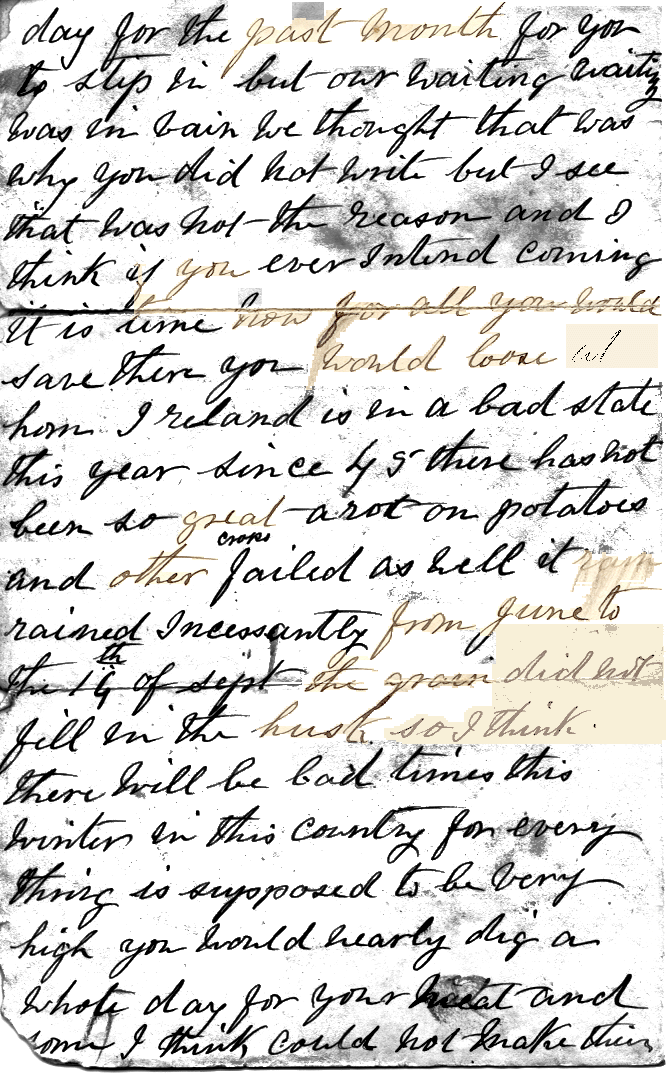 day for the past month for you
to step in but our waiting waiting
was in vain we thought that was
why you did not write but I see
that was not the reason and I
think if you ever Intend coming
it is time now for all you would
save there you would loose at
hom Ireland is in a bad state
this year since 45 there has not
been so great a rot on potatoes
and other crops failed as well it rain
rained Incessantly from June to
the 14th of sept the grain did not
fill in the husk so I think
there will be bad times this
winter in this country for every
thing is supposed to be very
high you would nearly dig a
whole day for your meat and
some I think could not make their